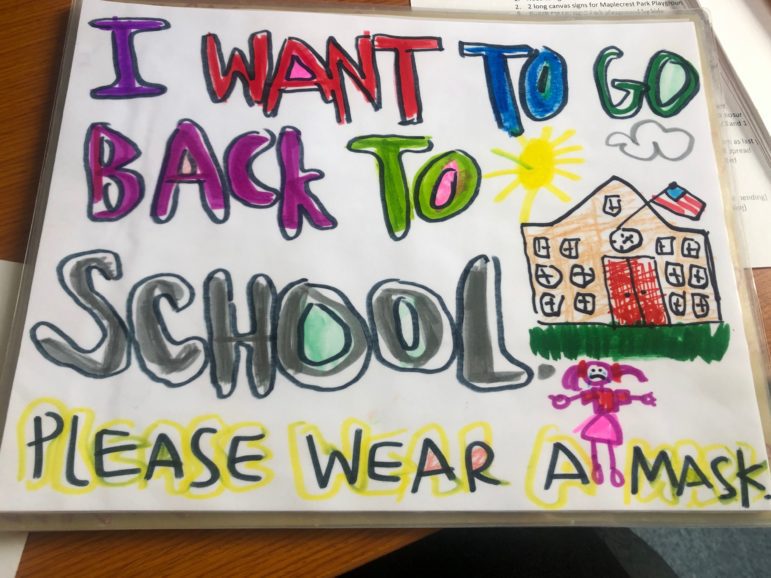 I WANT TO GO
BACK TO
SCHOOL.
PLEASE WEAR A MASK.
2. 2 long canvas signs for Maplecrest Park Playgroun